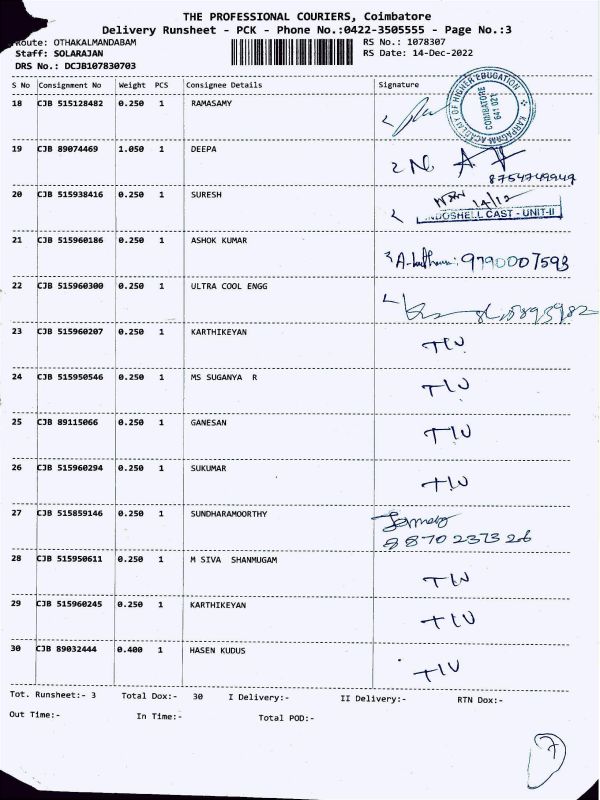 THE PROFESSIONAL COURIERS, Coimbatore
Delivery Runsheet - PCK - Phone No.:0422-3505555 - Page No.:3
Route: OTHAKALMANDABAM RS No.: 1078307
Staff: SOLARAJAN RS Date: 14-Dec-2022
DRS No.: DCJB107830703
S No Consignment No Weight PCS Consignee Details Signature
18 CJB 515128482 0.250 1 RAMASAMY
KARPAGAM ACADEMY OF HIGHER EDUCATION
COIMBATORE
641 021
19 CJB 89074469 1.050 1 DEEPA
8754749949
20 CJB 515938416 0.250 1 SURESH
14/12
INDOSHELL CAST - UNIT-II
21 CJB 515960186 0.250 1 ASHOK KUMAR
9790007593
22 CJB 515960300 0.250 1 ULTRA COOL ENGG
23 CJB 515960207 0.250 1 KARTHIKEYAN
24 CJB 515950546 0.250 1 MS SUGANYA R
25 CJB 89115066 0.250 1 GANESAN
26 CJB 515960294 0.250 1 SUKUMAR
27 CJB 515859146 0.250 1 SUNDHARAMOORTHY
28 CJB 515950611 0.250 1 M SIVA SHANMUGAM
29 CJB 515960245 0.250 1 KARTHIKEYAN
30 CJB 89032444 0.400 1 HASEN KUDUS
Tot. Runsheet:- 3 Total Dox:- 30 I Delivery:- II Delivery:- RTN Dox:-
Out Time:- In Time:- Total POD:-
7